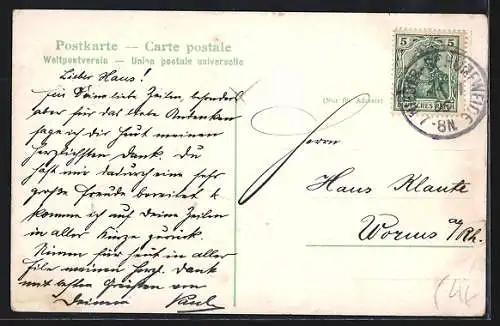 Postkarte — Carte postale
Weltpostverein — Union postale universelle
Lieber Hans!
Für Deine lieben Zeilen besonders
aber für das liebe Andenken
sage ich Dir heut meinen
herzlichsten Dank. Du
hast mir dadurch eine sehr
große Freude bereitet &
komme ich auf Deine Zeilen
in aller Kürze zurück.
Nimm für heut in aller
Eile meinen herzl. Dank
mit besten Grüßen von
Deinem Paul
5 5
(Nur für Adresse)
7-8N.
Herrn
Hans Klaute
Worms a/Rh.